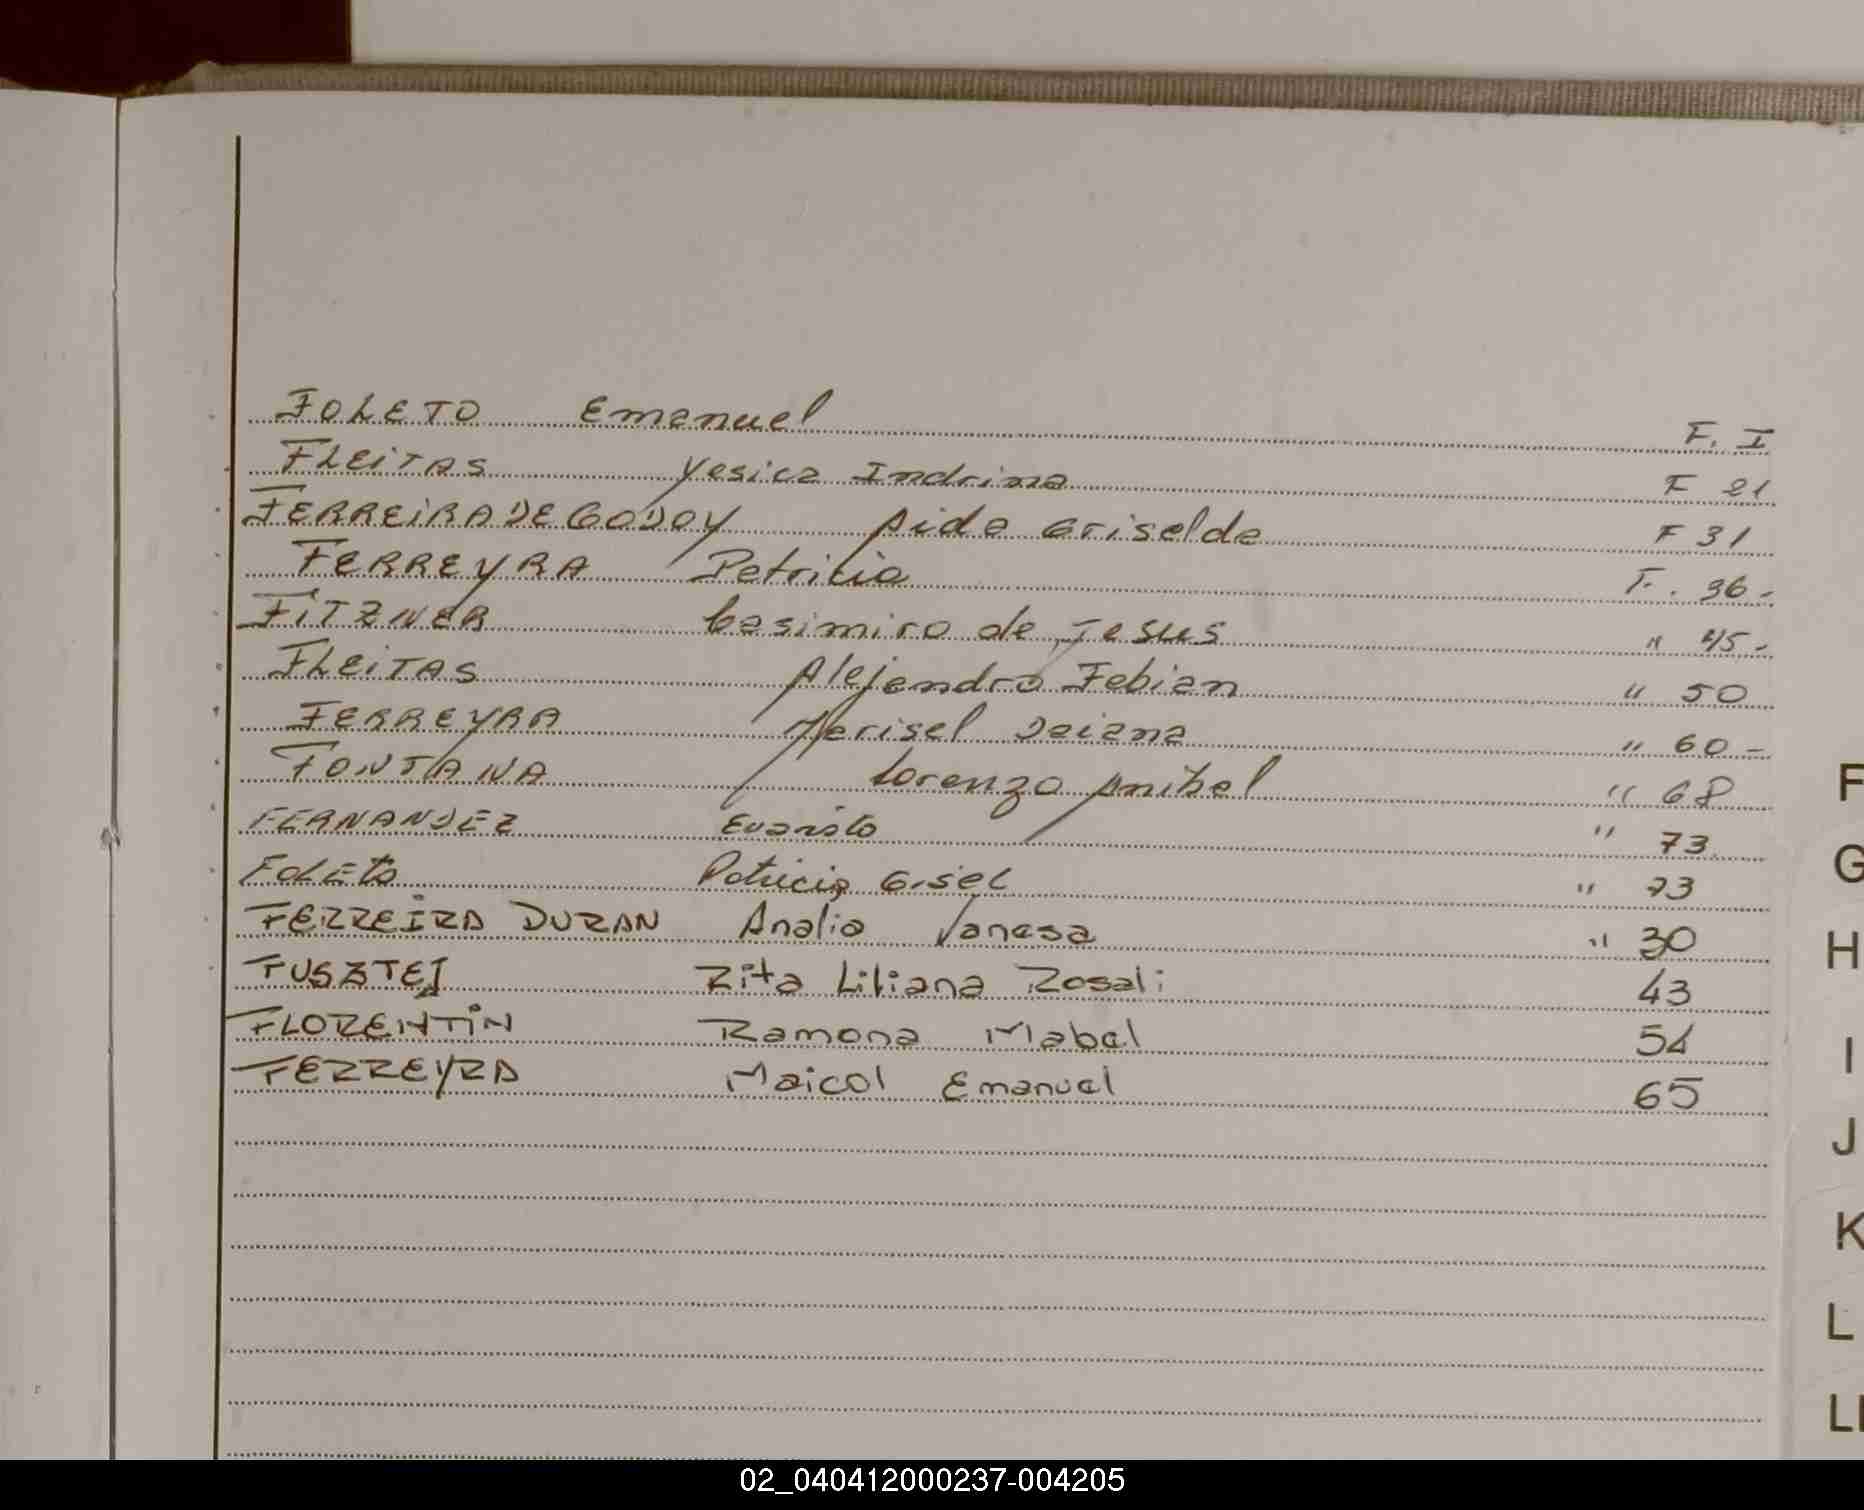 FOLETO Emanuel F. I
FLEITAS Yesica Indrina F 21
FERREIRA DE GODOY Aida Griselda F 31
FERREYRA Patricia F. 36-
FITZNER Casimiro de Jesus " 45-
FLEITAS Alejandro Fabian " 50
FERREYRA Marisel Daiana " 60-
FONTANA Lorenzo Anibal " 68
FERNANDEZ Evaristo " 73
FOLETO Patricia Gisel " 73
FERREIRA DURAN Analia Vanesa " 30
FUSZTEI Rita Liliana Rosali 43
FLORENTIN Ramona Mabel 54
FERREYRA Maicol Emanuel 65
F
G
H
I
J
K
L
LL
02_040412000237-004205